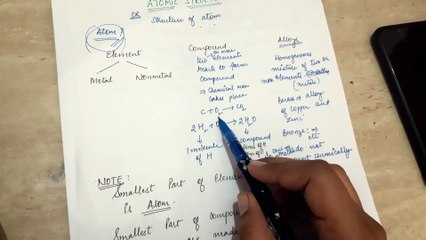 ATOMIC STRUC
OR
Structure of atom
Atoms
Element
Metal Nonmetal
Compound
or more
two Elements
Reacts to form
Compound
⇒ Chemical
takes place
C + O₂ → CO₂
2H₂ + O → 2H₂O
1 molecule
of H
compound
Alloys
Homogeneous
mixture of two or
more Elements
(metals)
Brass → alloy
of Copper and
Zinc
Bronze:
etc
not
chemically
NOTE:
Smallest Part of Element
is Atom.
Smallest Part of Compound
are made